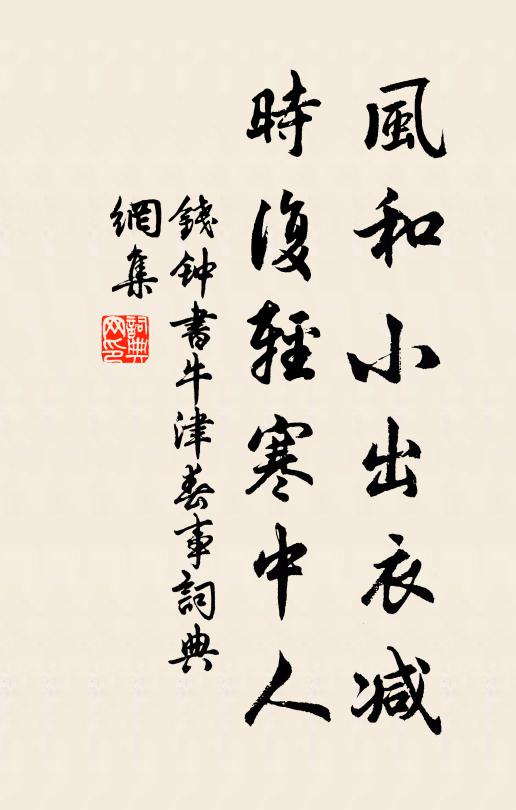 風和小出衣減
時復輕寒中人
錢钟書牛津春事詞典
網集
詞典
网印